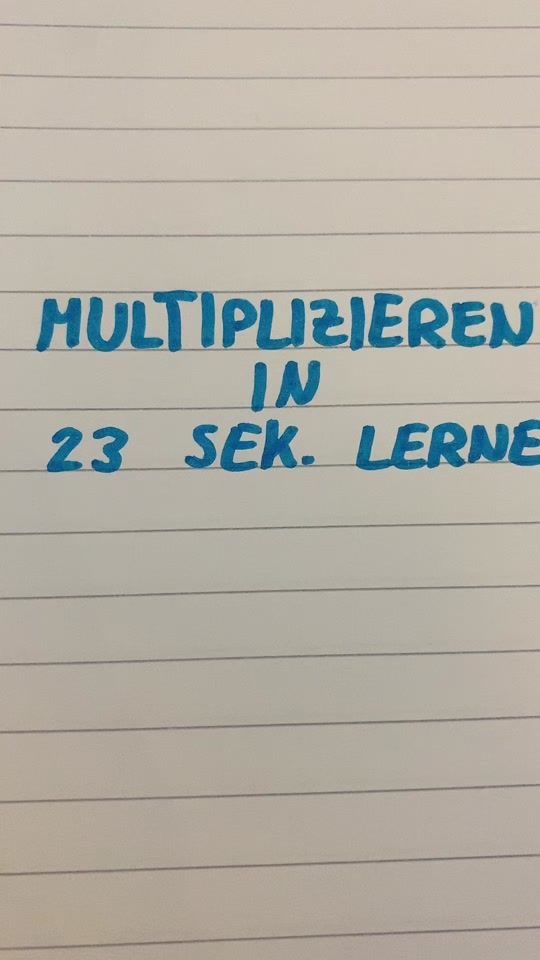 MULTIPLIZIEREN
IN
23 SEK. LERNE